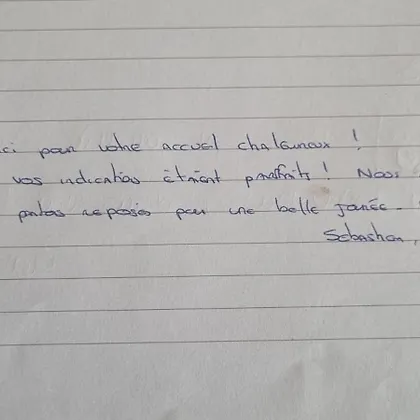 ci pour votre accueil chaleureux !
vos indications étaient parfaits ! Nous
partons reposés pour une belle journée.
Sebastien,